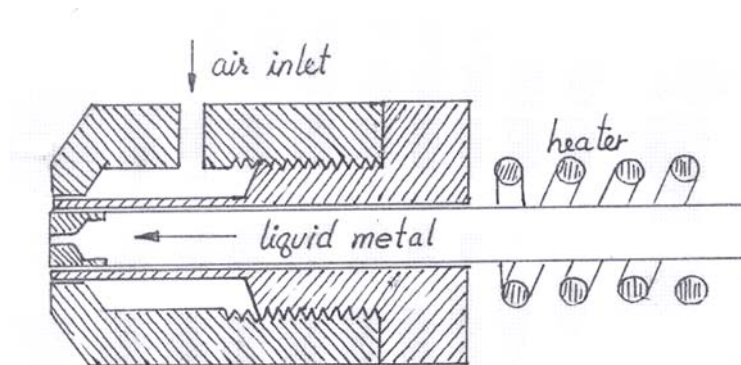 air inlet
heater
liquid metal